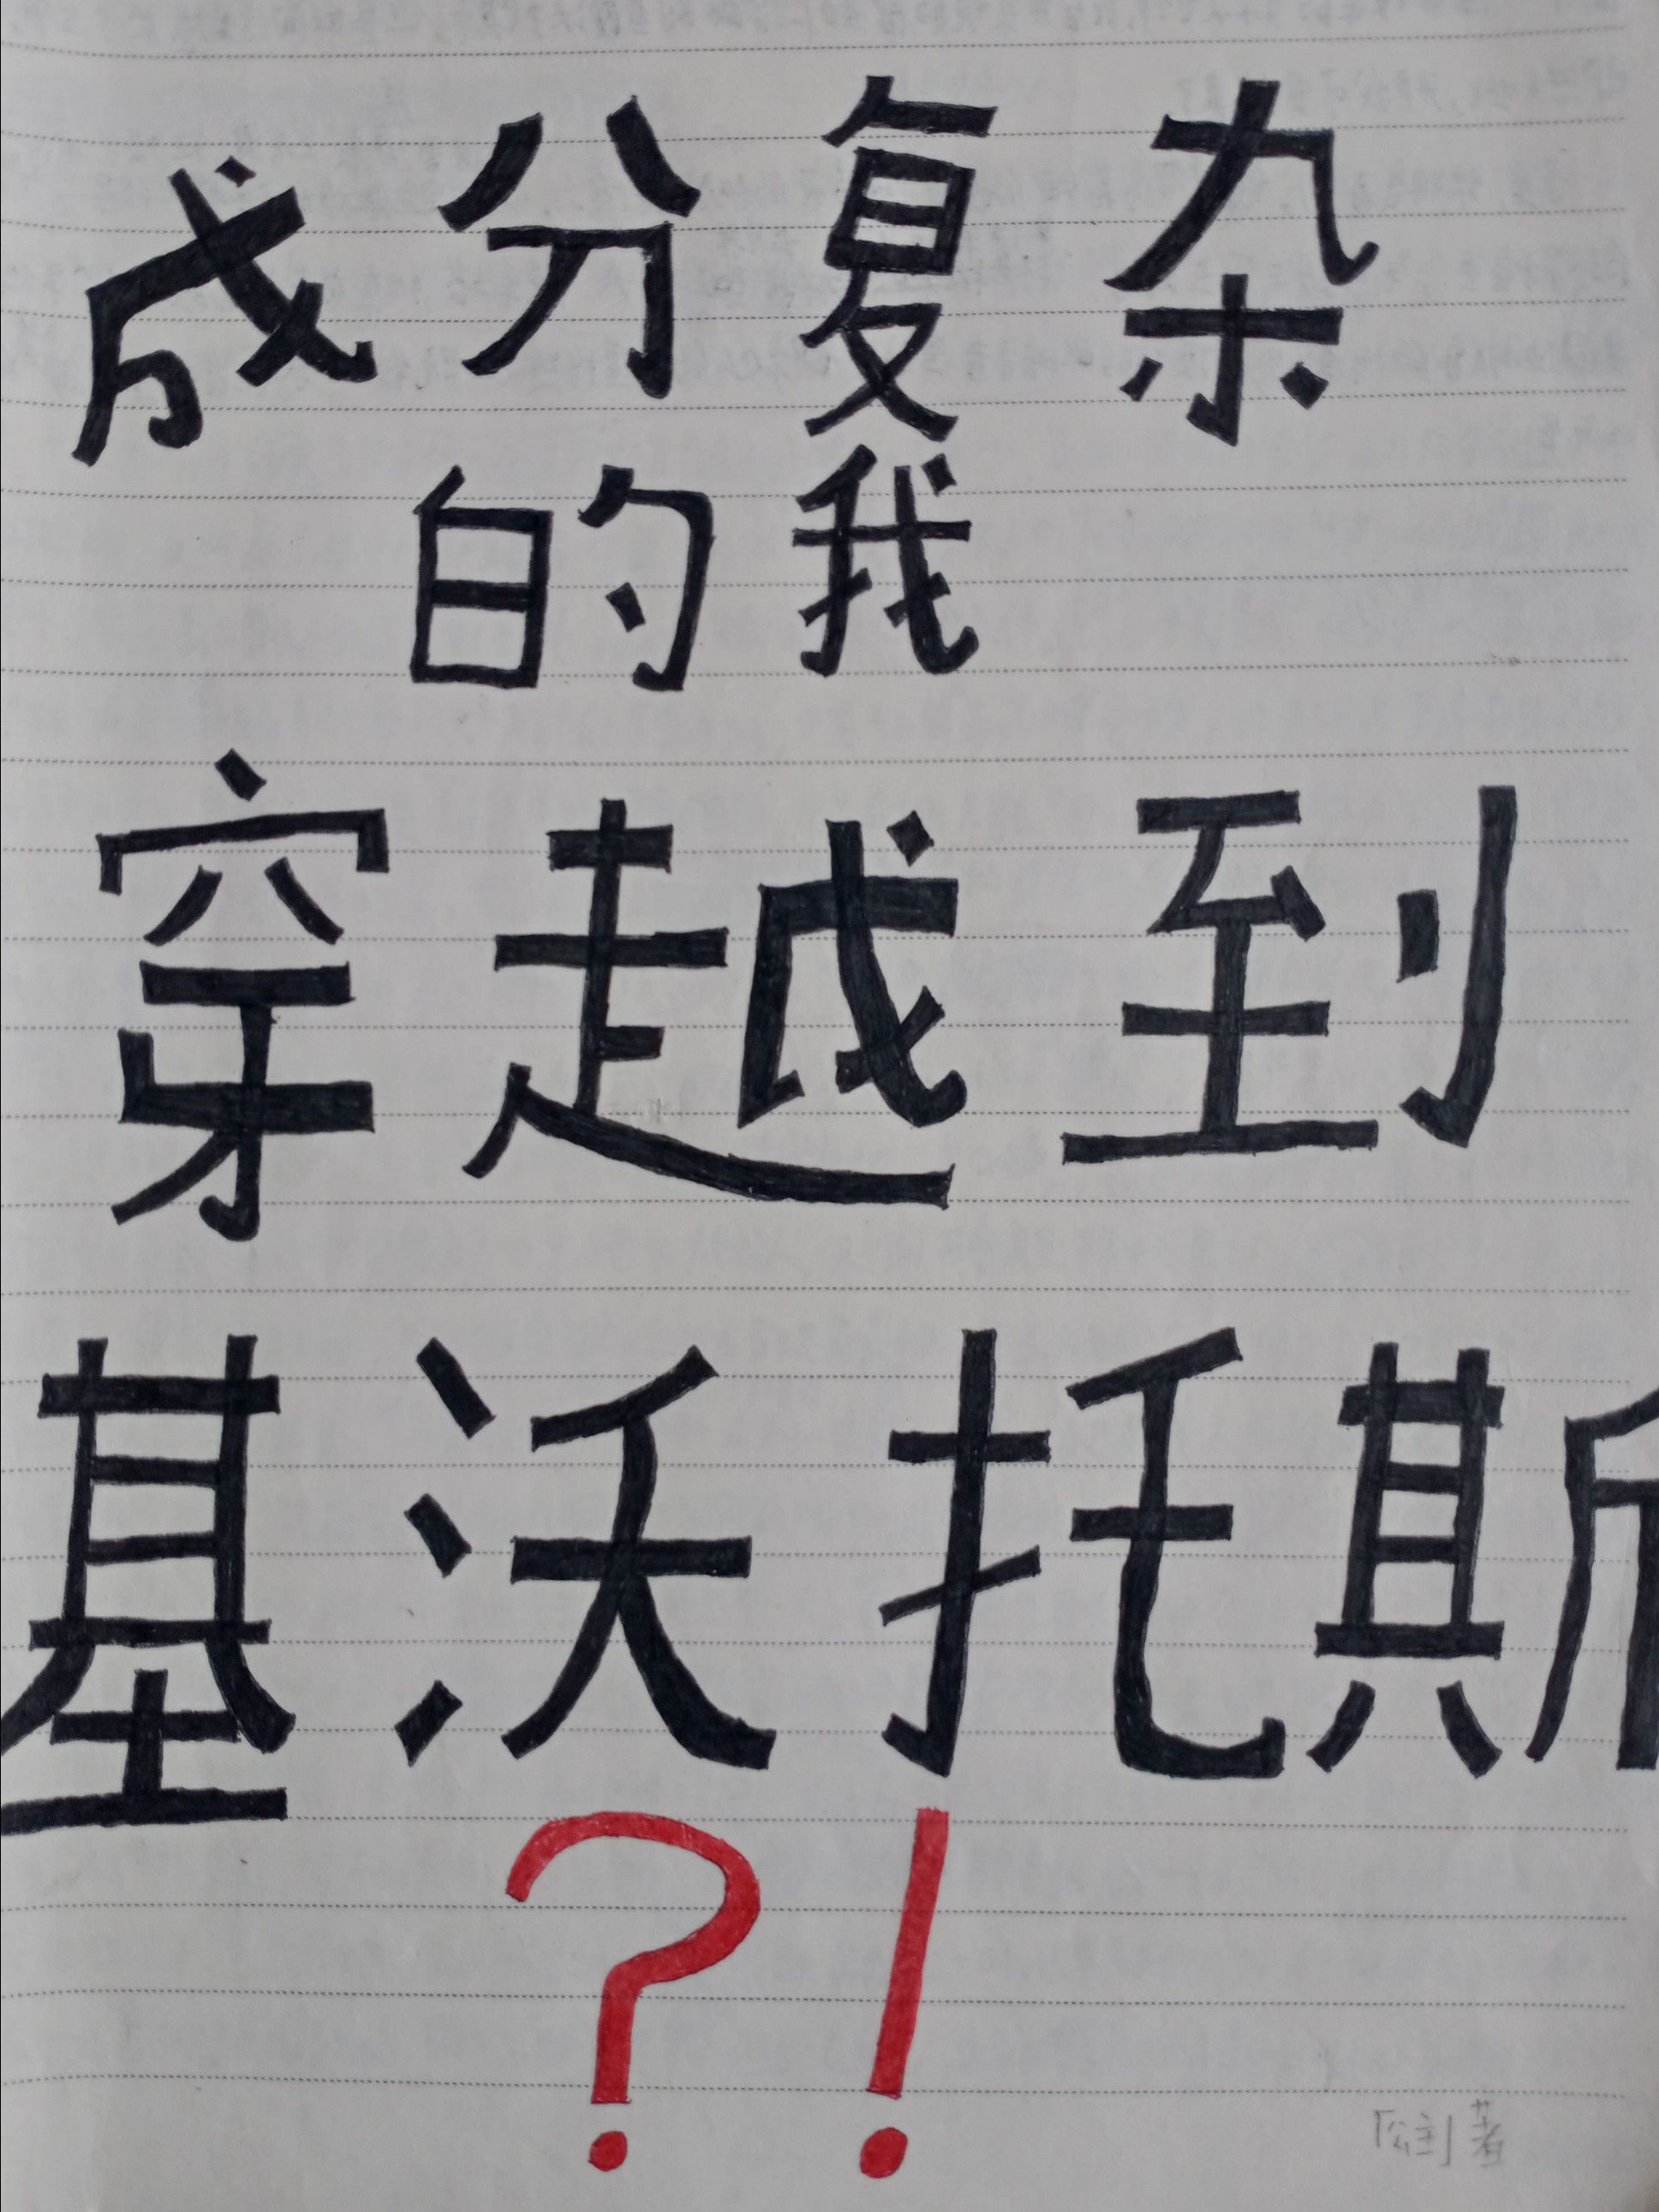 成分复杂
的我
穿越到
基沃托斯
?!
「公主」著